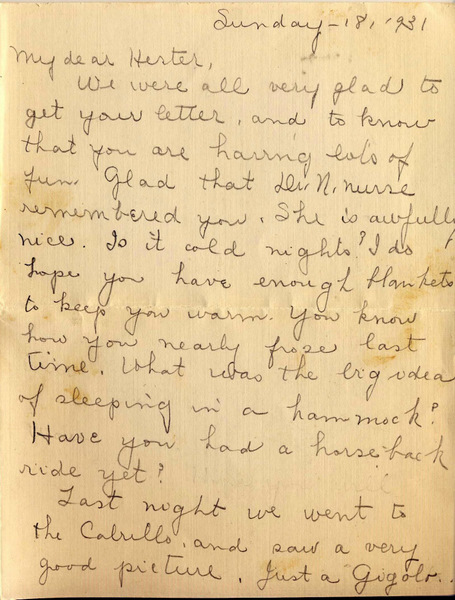 Sunday - 18, 1931
My dear Hester,
We were all very glad to
get your letter, and to know
that you are having lots of
fun. Glad that Dr. N. nurse
remembered you. She is awfully
nice. Is it cold nights? I do
hope you have enough blankets
to keep you warm. You know
how you nearly froze last
time. What was the big idea
of sleeping in a hammock?
Have you had a horse back
ride yet?
Last night we went to
the Cabrillo, and saw a very
good picture, Just a Gigolo.